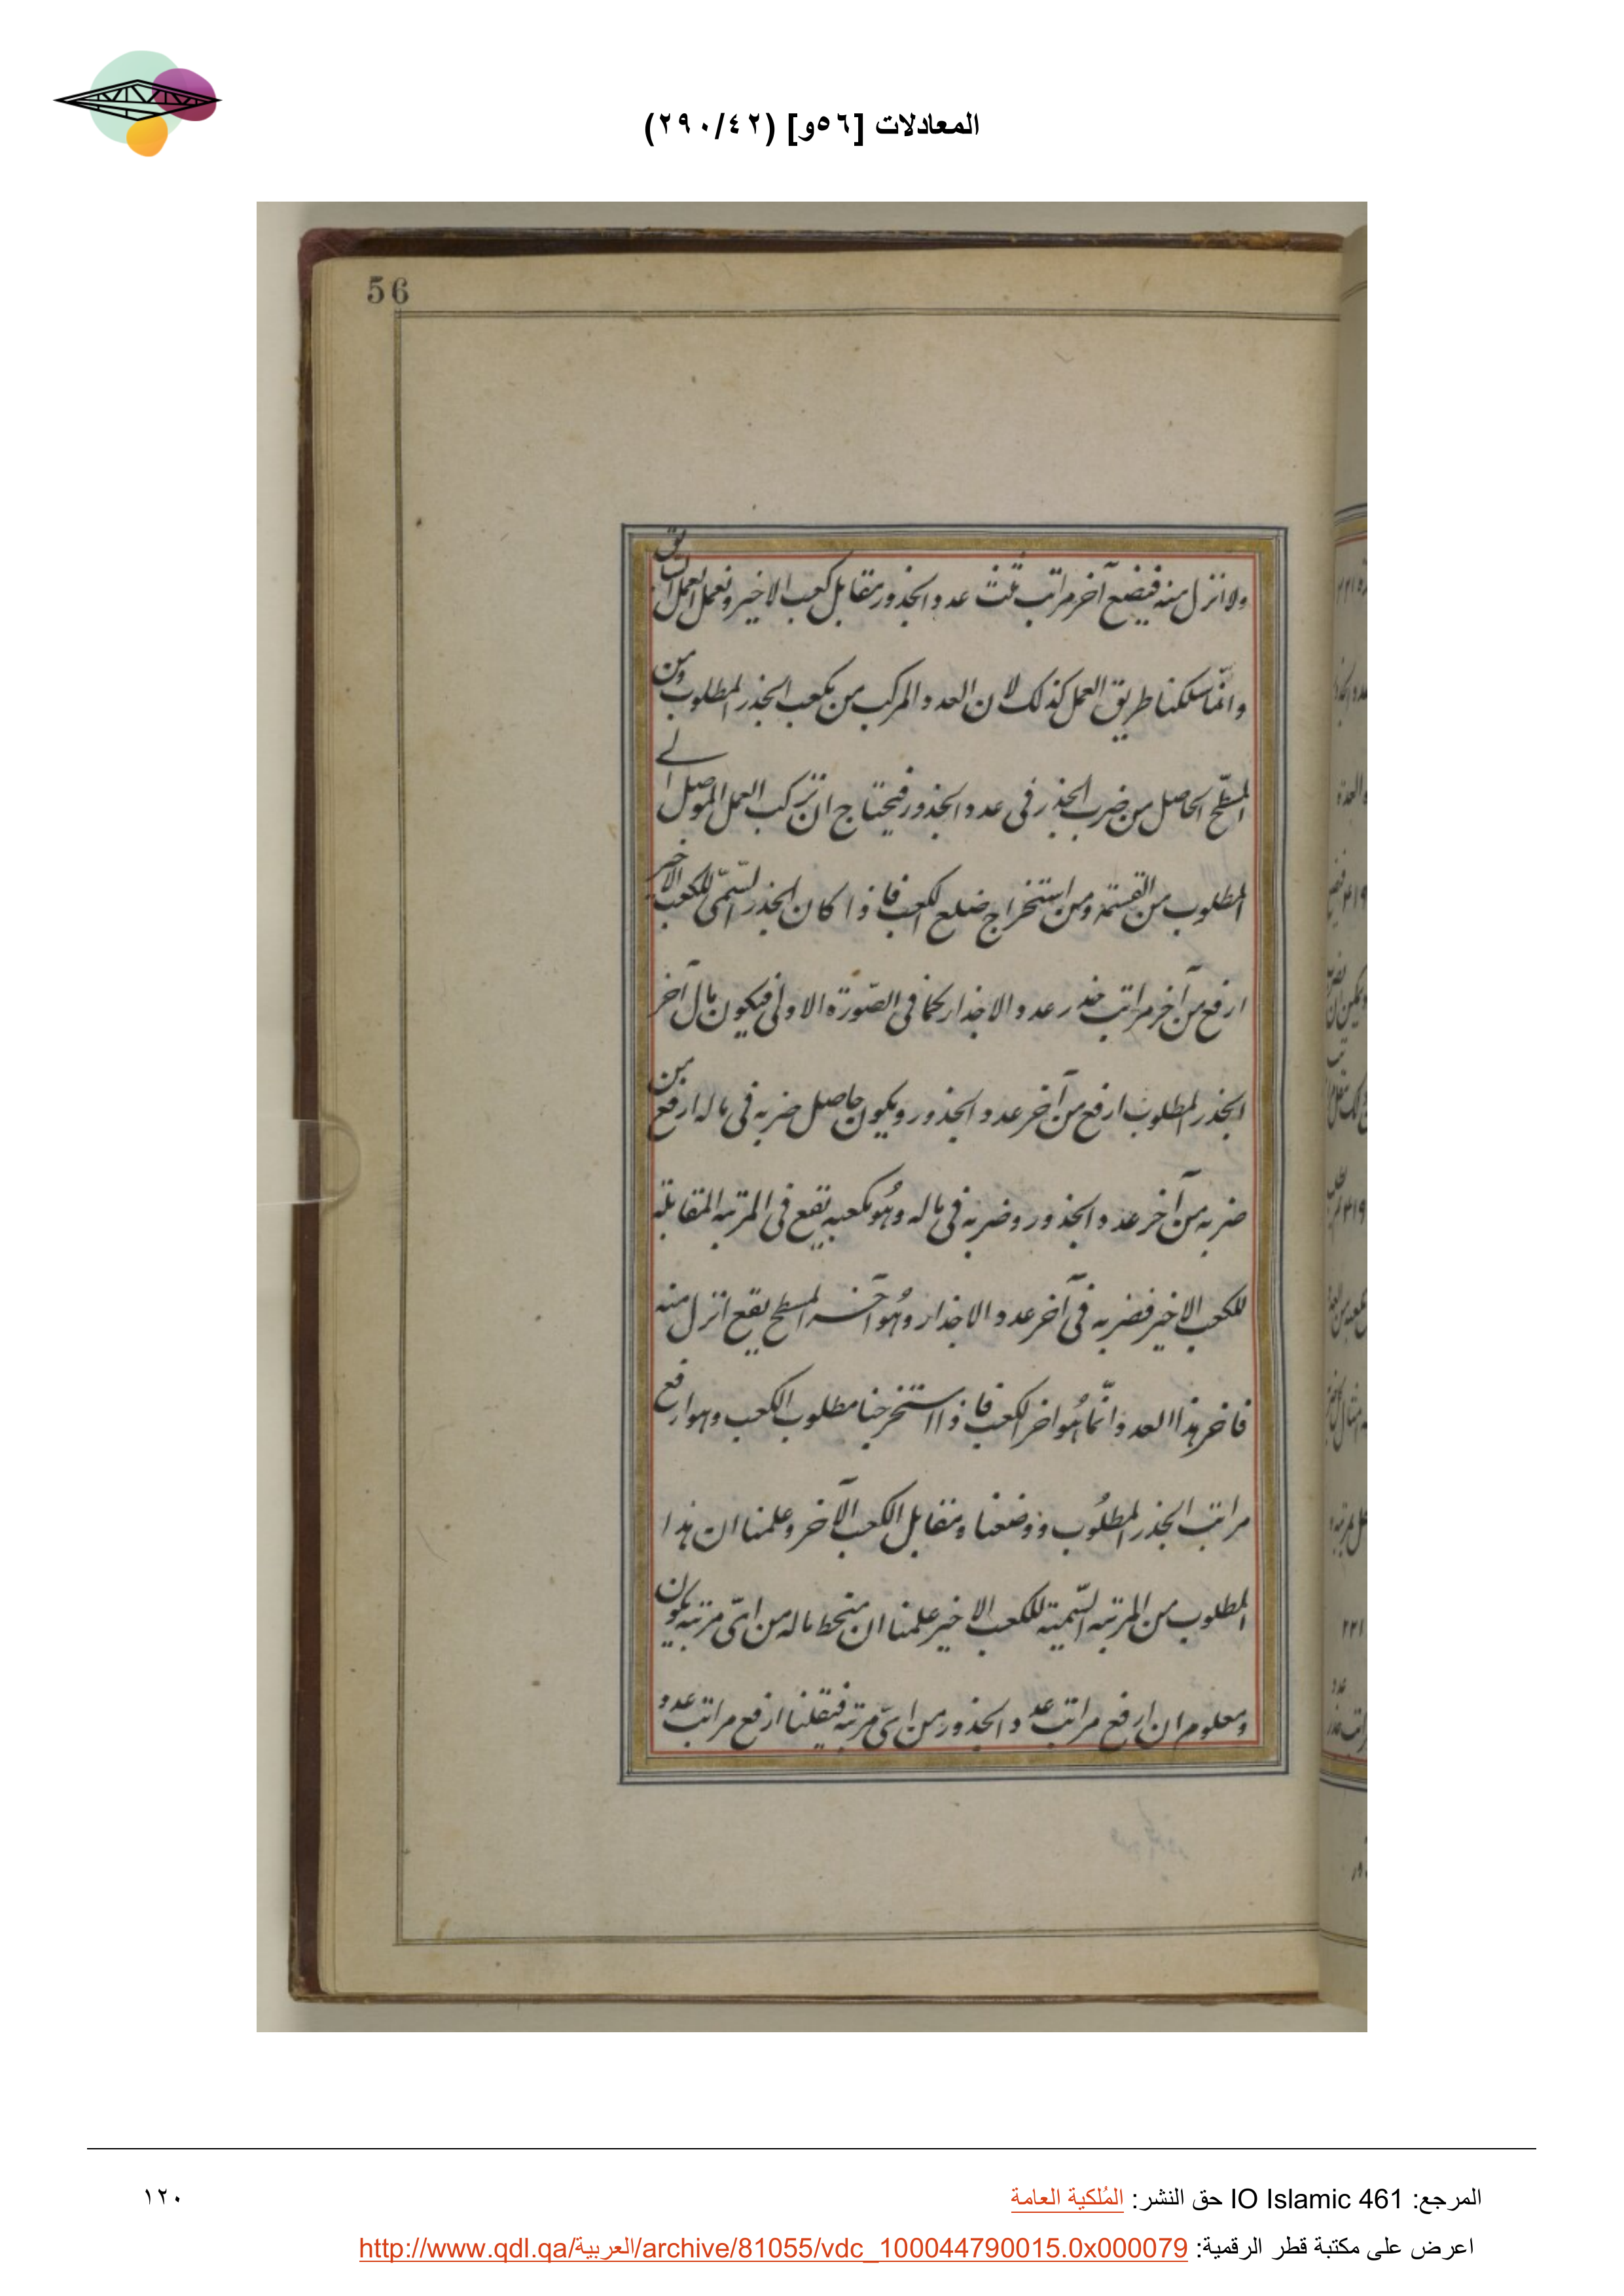 المعادلات [٥٦و] (٢٩٠/٤٢)
56
ولا انزل منه فيضع آخر مراتب ثلث عدد الجذور مقابل كعب الاخير ونعمل العمل السابق
وانّما سلكنا طريق العمل كذلك لان العدد المركب من مكعب الجذر المطلوب ومن
المسطّح الحاصل من ضرب الجذر فى عدد الجذور فيحتاج ان نركب العمل الموصل الے
المطلوب من القسمة ومن استخراج ضلع الكعب فاذا كان الجذر السّمىّ للكعب الاخير
ارفع من آخر مراتب جذر عدد الاجذار كما فى الصّورة الاولى فيكون مال آخر
الجذر المطلوب ارفع من آخر عدد الجذور ويكون حاصل ضربه فى ماله ارفع من
ضربه من آخر عدد الجذور وضربه فى ماله وهُو مكعبه يقع فى المرتبه المقابلة
للكعب الاخير فضربه فى آخر عدد الاجذار وهُو آخر المسطح يقع انزل منه
فاخر هذا العدد وانّما هُو اخر الكعب فاذا استخرجنا مطلوب الكعب وهو ارفع
مراتب الجذر المطلُوب ووضعنا ومقابل الكعب الآخر وعلمنا ان هذا
المطلوب من المرتبه السّمية للكعب الاخير علمنا ان منحط ماله من اىّ مرتبه يكون
ومعلوم ان ارفع مراتب عدد الجذور من اىّ مرتبه فنقلنا ارفع مراتب عدد
المرجع: IO Islamic 461 حق النشر: المُلكية العامة
١٢٠
اعرض على مكتبة قطر الرقمية: http://www.qdl.qa/العربية/archive/81055/vdc_100044790015.0x000079